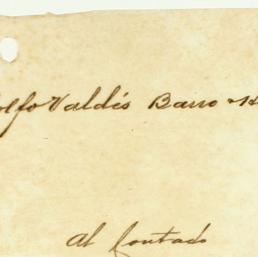 olfo Valdés Barro
Al contado